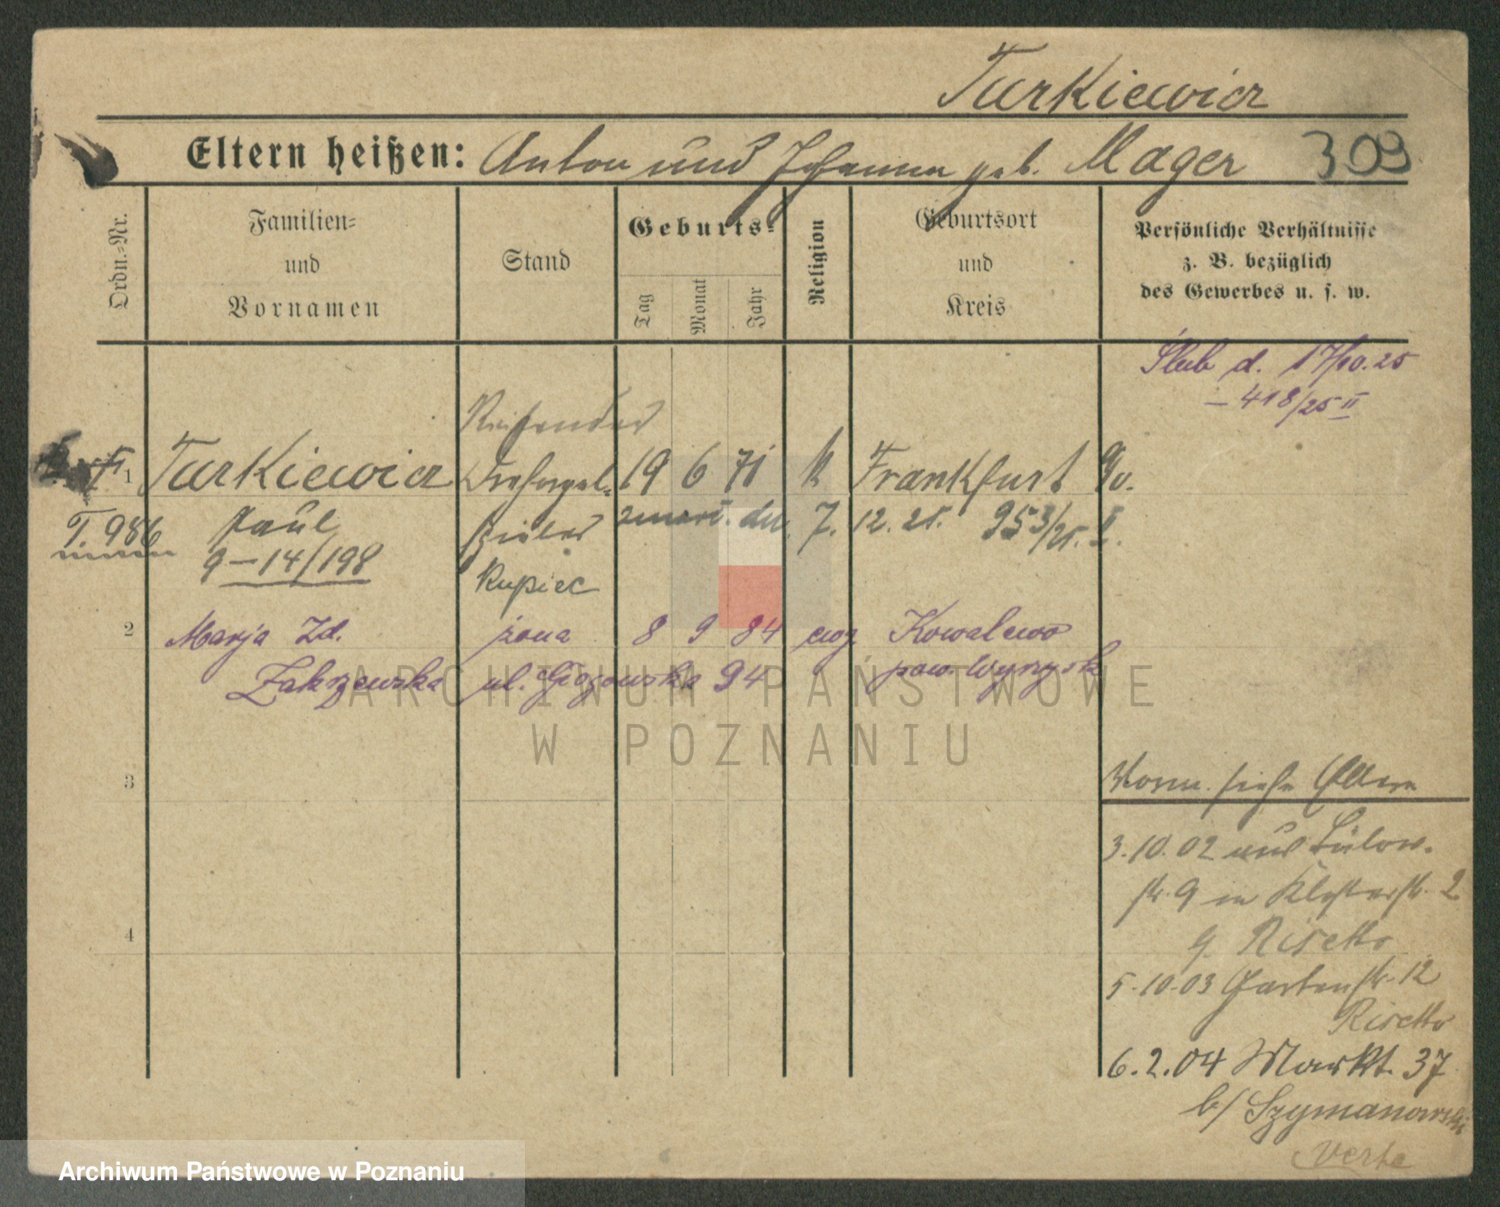 Turkiewicz
Eltern heißen: Anton und Johanna geb. Mager 309
Ordn.-Nr.
Familien-
und
Vornamen
Stand
Geburts-
Tag
Monat
Jahr
Religion
Geburtsort
und
Kreis
Persönliche Verhältnisse
z. B. bezüglich
des Gewerbes u. s. w.
Ślub d. 17/10.25
- 418/25 II
Reisender
1 Turkiewicz 19 6 71 k Frankfurt O/o.
T. 986 Paul zmarł dn. 7. 12. 25. 953/25. II.
9-14/198
Kupiec
2 Marja Zd. żona 8 9 84 ewg Kowalewo
Zakrzewska ul. Głogowska 94 pow. Wyrzysk
3
Vorm. siehe Eltern
3.10.02 aus Bülow-
str. 9 in Klosterstr. 2
4
b. Risetto
5.10.03 Gartenstr. 12
Risetto
6.2.04 Markt. 37
b/ Szymanowski
verte
ARCHIWUM PAŃSTWOWE
W POZNANIU
Archiwum Państwowe w Poznaniu